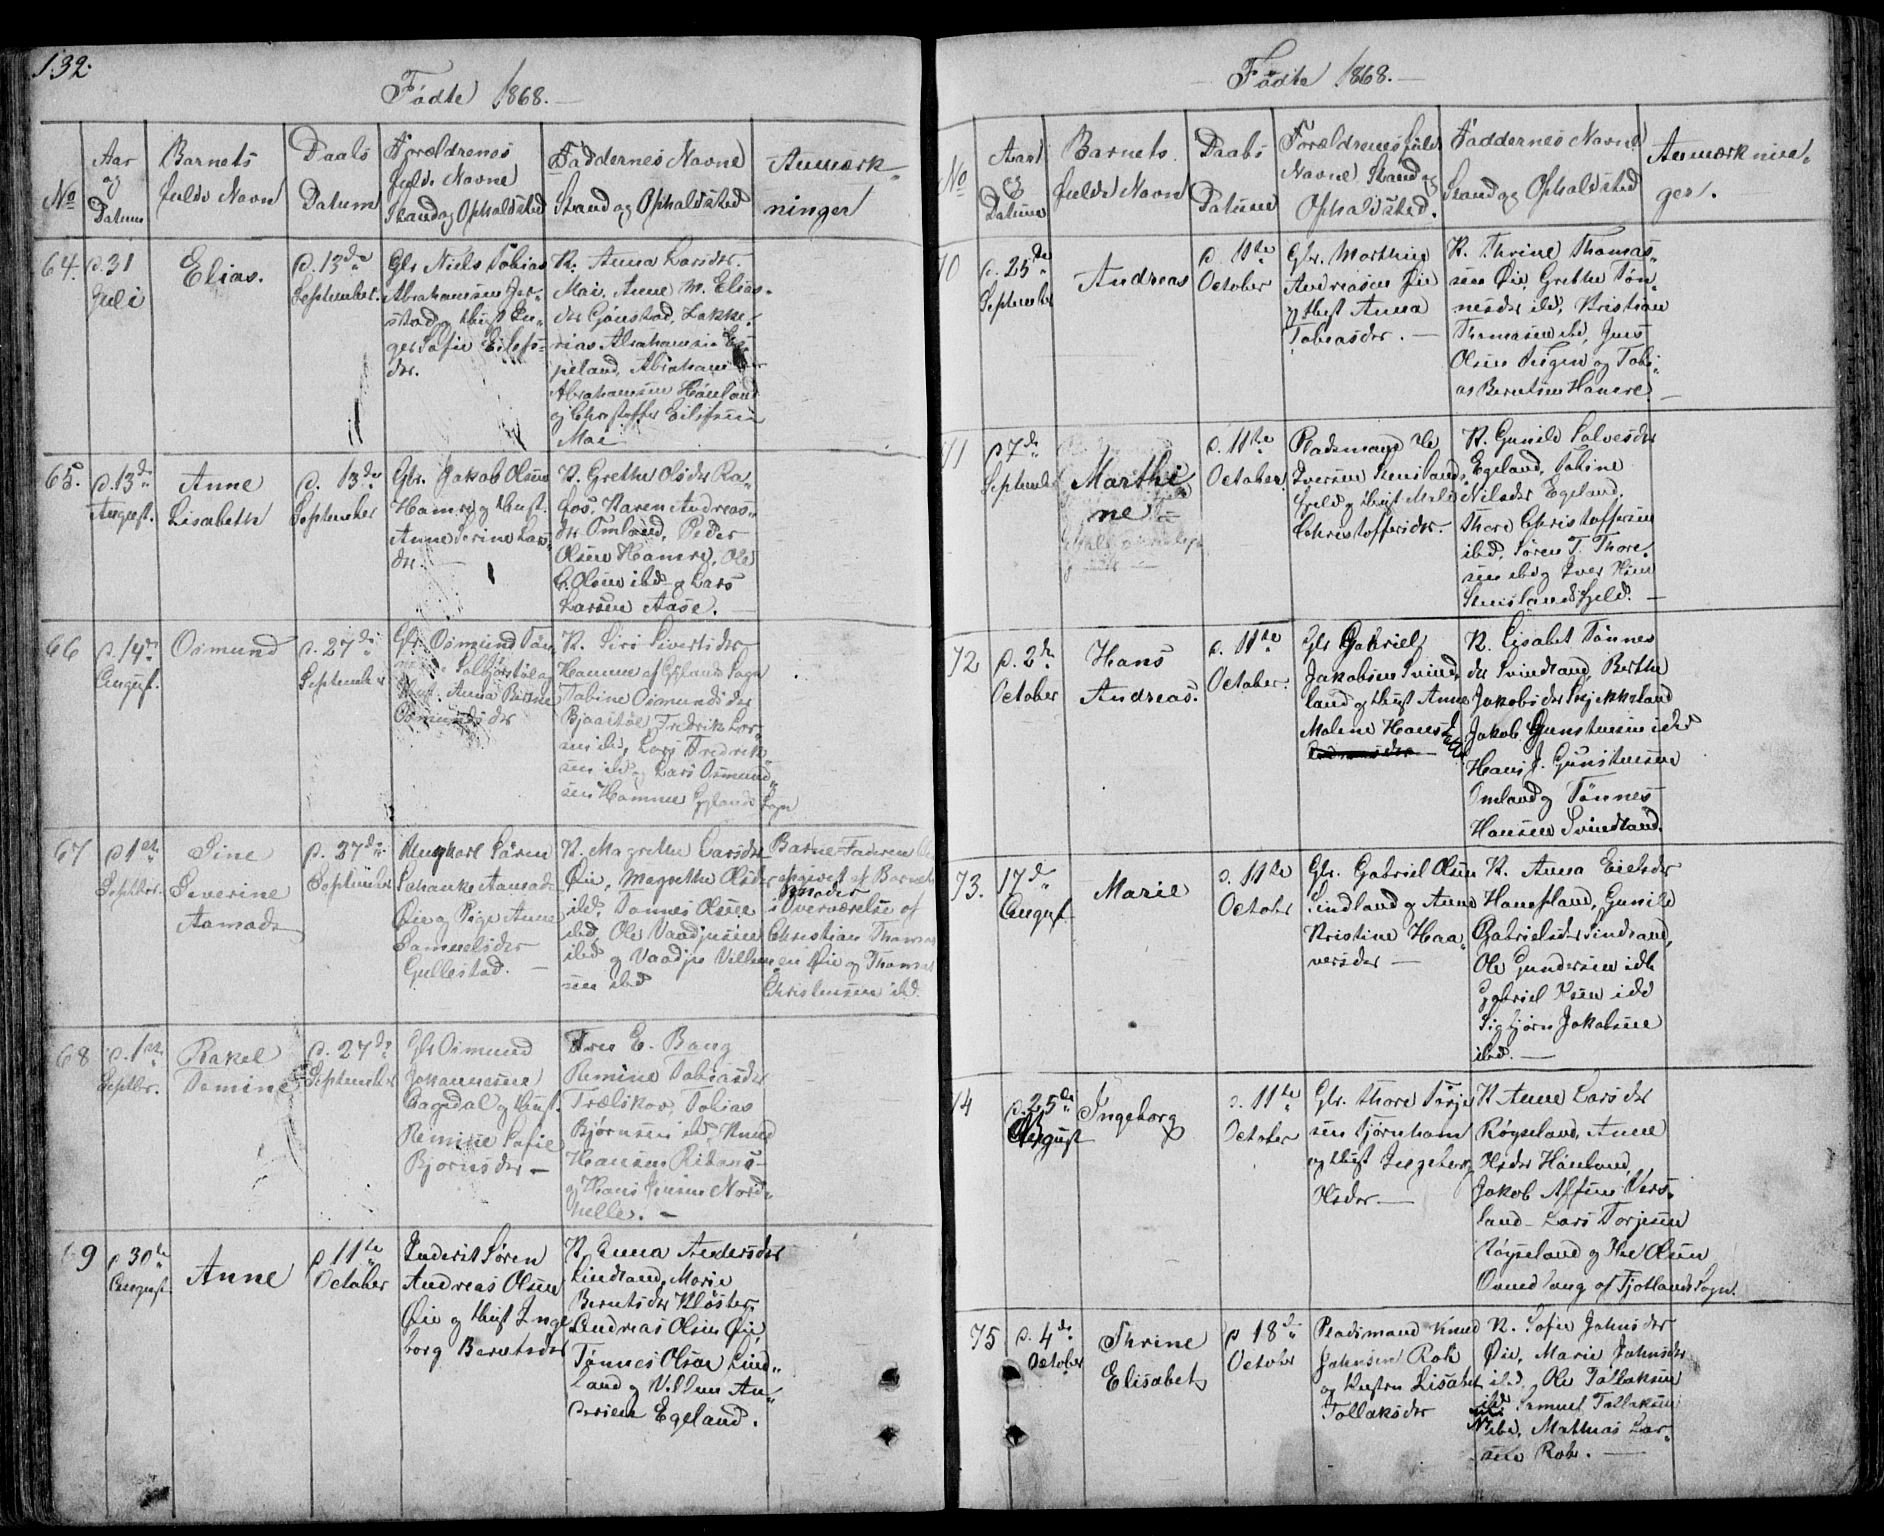 132.
Födte 1868.
No
Aar
og
Datum
Barnets
fulde Navn
Daabs
Datum
Forældrenes
fulde Navne
Stand og Opholdsted
Faddernes Navne
Stand og Opholdsted
Anmærk-
ninger
64.
d. 31
Juli
Elias.
d. 13de
September.
Gbr Niels Tobias
Abrahamsen
og Hust In-
ger Sofie Eilefs-
dr.
K. Anna Larsdr.
Moi. Anne M. Elias-
dr Zakka-
rias Abrahamsen Es-
peland, Abraham
Abrahamsen Hönland
og Christoffer Eilefsen
Moi
65.
d. 13de
August.
Anne
Lisabeth
d. 13de
September
Gbr. Jakob Olsen
Hamre og Hust.
Anne Serine Lars
dr.
K. Grethe Olsdr Ra-
fos, Karen Andreas-
dr Omland, Peder
Olsen Hamre, Ole
Olsen ibd og Lars
Larsen Aase.
66
d. 14de
August.
Osmund
d. 27de
September
Gbr. Osmund Tön
Solbjörstöl og
Hust. Anna Berthe
Osmundsdr
K. Siri Sivertsdr
Hamme af Gylands Sogn
Tobine Osmundsdr
Bjaastöl Fredrik Lar-
sen ibd, Lars Fredrik-
sen ibd og Lars Osmund-
sen Hamme Gylands Sogn
67
d 1ste
Septbr.
Sine
Severine
Aamads
d. 27de
September
Ungkarl Sören
Schanke Aamads
Öie og Pige Anne
Samuelsdr
Gullestad.
K. Magrethe Larsdr
Öie, Magrethe Olsdr
ibd, Tønnes Olsen
ibd, Ole Vaadjesen
ibd og Vaadje Villum-
sen ibd
Barne-Faderen
opgivet af Barnets
Moder
i Overværelse af
Christian Thomas-
sen Öie og Thomas
Christensen ibd.
68
d. 1ste
Septbr.
Rakel
Tomine
d. 27de
September
Gbr Osmund
Johannesen
Bagedal og Hust.
Remine Sofie
Bjornsdr
Fru E. Bang
Remine Tobiasdr
Trælskov, Tobias
Bjørnsen ibd, Knud
Hansen Ribans-
og Hans Jensen Nord-
helle.
9
d 30te
August
Anne
d 11te
October
Inderst Sören
Andreas Olsen
Öie og Hust Inge
borg Berntsdr
K. Anna Andersdr
Lindland, Marie
Berntsdr Kloster
Andreas Olsen Öie,
Tönnes Olsen Lind-
land og Villum An-
dersen Egeland.
Födte 1868.
No
Aar
og
Datum
Barnets
fulde Navn
Daabs
Datum
Forældrenes fulde
Navne Stand og
Opholdsted.
Faddernes Navne
Stand og Opholdsted
Anmærknin-
ger.
70
d. 25de
September
Andreas
d. 11te
October
Gbr. Morthin
Andreasen Öie
og Hust Anna
Tobiasdr.
K. Thrine Thomas-
sen Öie, Grethe Tön-
nesdr ibd, Kristian
Thomassen ibd, Jens
Olsen og Tobi-
as Berntsen Hamre
71
d 7de
September
Marthi
ne
d. 11te
October
Pladsmand
Iversen Stensland-
fjeld og Hust Male
Christoffersdr.
K. Gunild Salvesdr
Egeland, Tobine
Nilsdr Egeland,
Thore Christoffersen
ibd, Sören T. Thore-
sen ibd og Iver
Stenslandsfjeld.
72
d. 2de
October
Hans
Andreas.
d. 11te
October.
Gbr Gabriel
Jakobsen Svind-
land og Hust Anne
Malene Hans
K. Lisabet Tönnes
dr Svindland, Berthe
Jakobsdr
Jakob Gunstensen ibd
Hans J. Gunstensen
Omland og Tönnes
Hansen Svindland.
73.
17de
August
Marie
d. 11te
Octobr
Gbr. Gabriel Olsen
Sindland og Anne
Kristine Haa-
versdr
K. Anna
Gunild
Gabrielsdr Sindland,
Ole Gundersen ibd
Gabriel ibd
Sigbjørn Jakobsen
ibd.
74
d. 25de
August
Ingeborg
d. 11te
October
Gbr. Thore Torje
sen Bjørnham
og Hust Ingeborg
Olsdr
K Anne Larsdr
Röyseland, Anne
Olsdr Hönland,
Jakob
land Lars Torjesen
Röyseland og Olsen
af Fjotlands Sogn.
75
d. 4de
October
Thrine
Elisabet
d 18de
October
Pladsmand Knud
Johnsen Röb
og Hustru Lisabet
Tollaksdr
K. Sofie Johnsdr
Öie, Marie Johnsdr
ibd, Ole Tollaksen
ibd Samuel Tollaksen
ibd, Mathias Lar-
sen Röb.